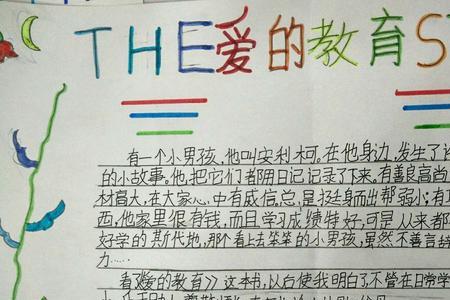 THE爱的教育S
有一个小男孩,他叫安利柯。在他身边,发生了许
的小故事。他,把它们都用日记记录了下来。有善良高尚
材高大,在大家心中有威信,总是挺身而出帮弱小;有
西,他家里很有钱,而且学习成绩特好,可是从来都
好学的斯代地,那个看上去笨笨的小男孩,虽然不善言
力……
看了《爱的教育》这本书,以后使我明白了,不管在日常学